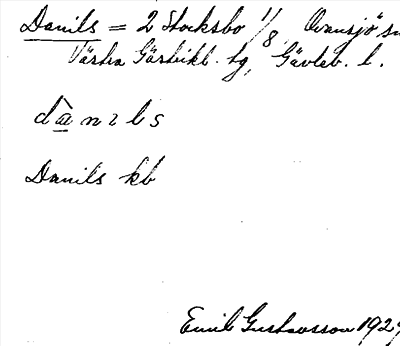 Danils = 2 Stocksbo 1/8, Ovansjö sn
Västra Gästrikl. tg, Gävleb. l.
dànıls
Danils kb
Emil Gustavsson 192